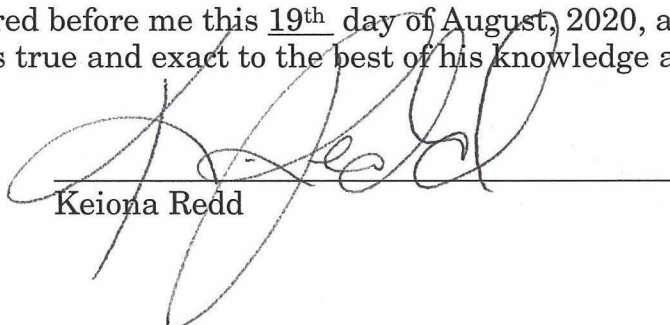 red before me this 19th day of August, 2020, a
s true and exact to the best of his knowledge a
K Redd
Keiona Redd